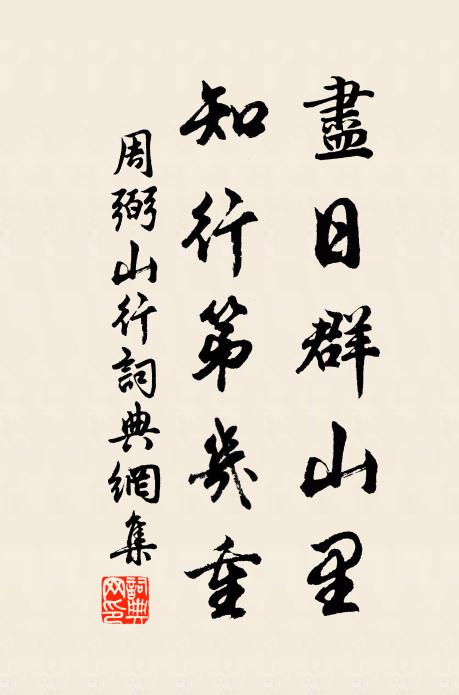 盡日群山里
知行第幾重
周弼山行詞典網集
詞典网印